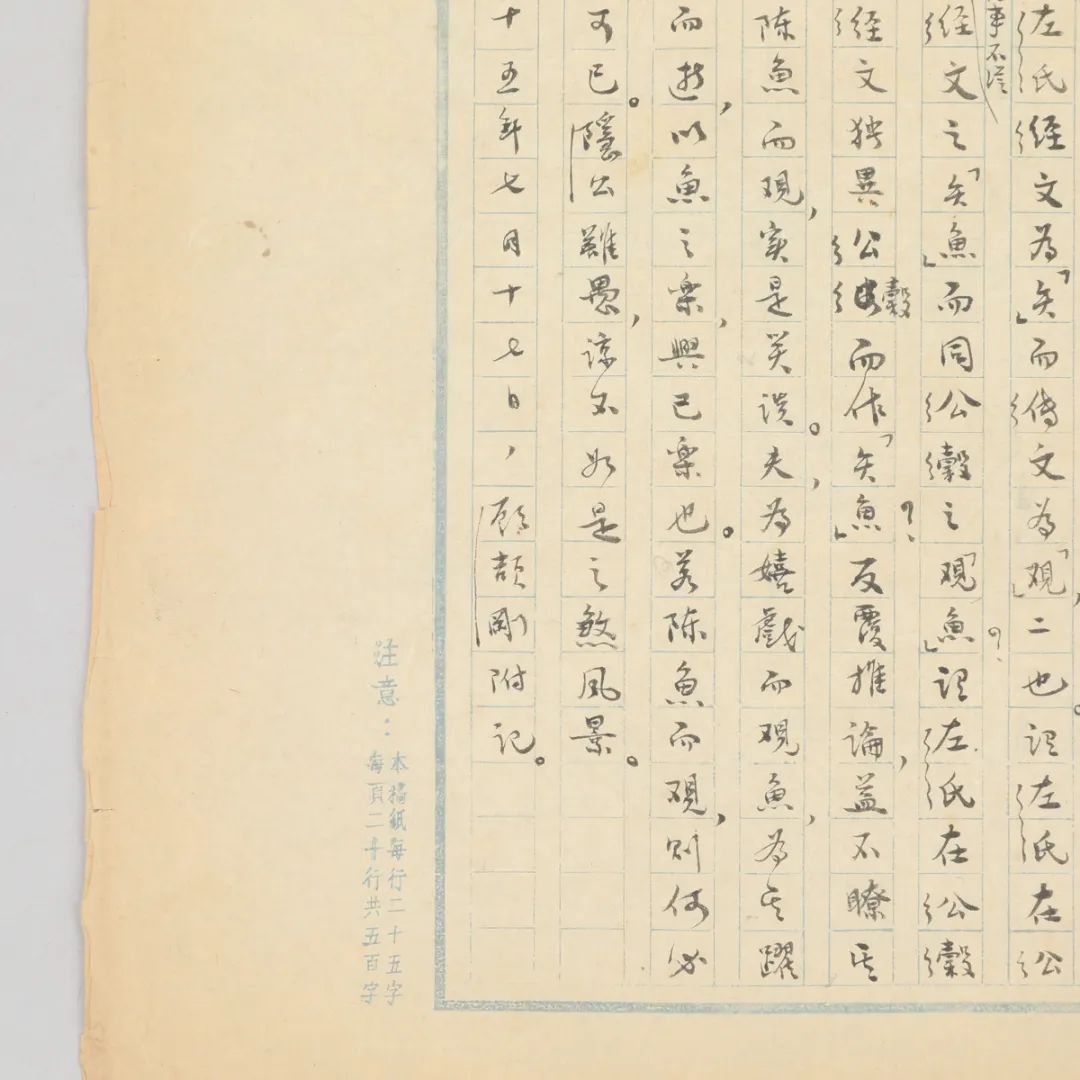 左氏經文為「矢」而傳文為「覌」,二也。謂左氏在公
事不從
經文之「矢魚」而同公穀之「覌魚」?謂左氏在公穀
經文独異公穀而作「矢魚」?反覆推論,益不瞭其
陳魚而覌,实是笑誤。夫為嬉戲而覌魚,為其躍
而游,以魚之樂,興己樂也。若陳魚而覌,則何必
可已。隱公雖愚,諒不如是之煞風景。
十五年七月十七日,顧頡剛附記。
注意:
本稿紙每行二十五字
每頁二十行共五百字